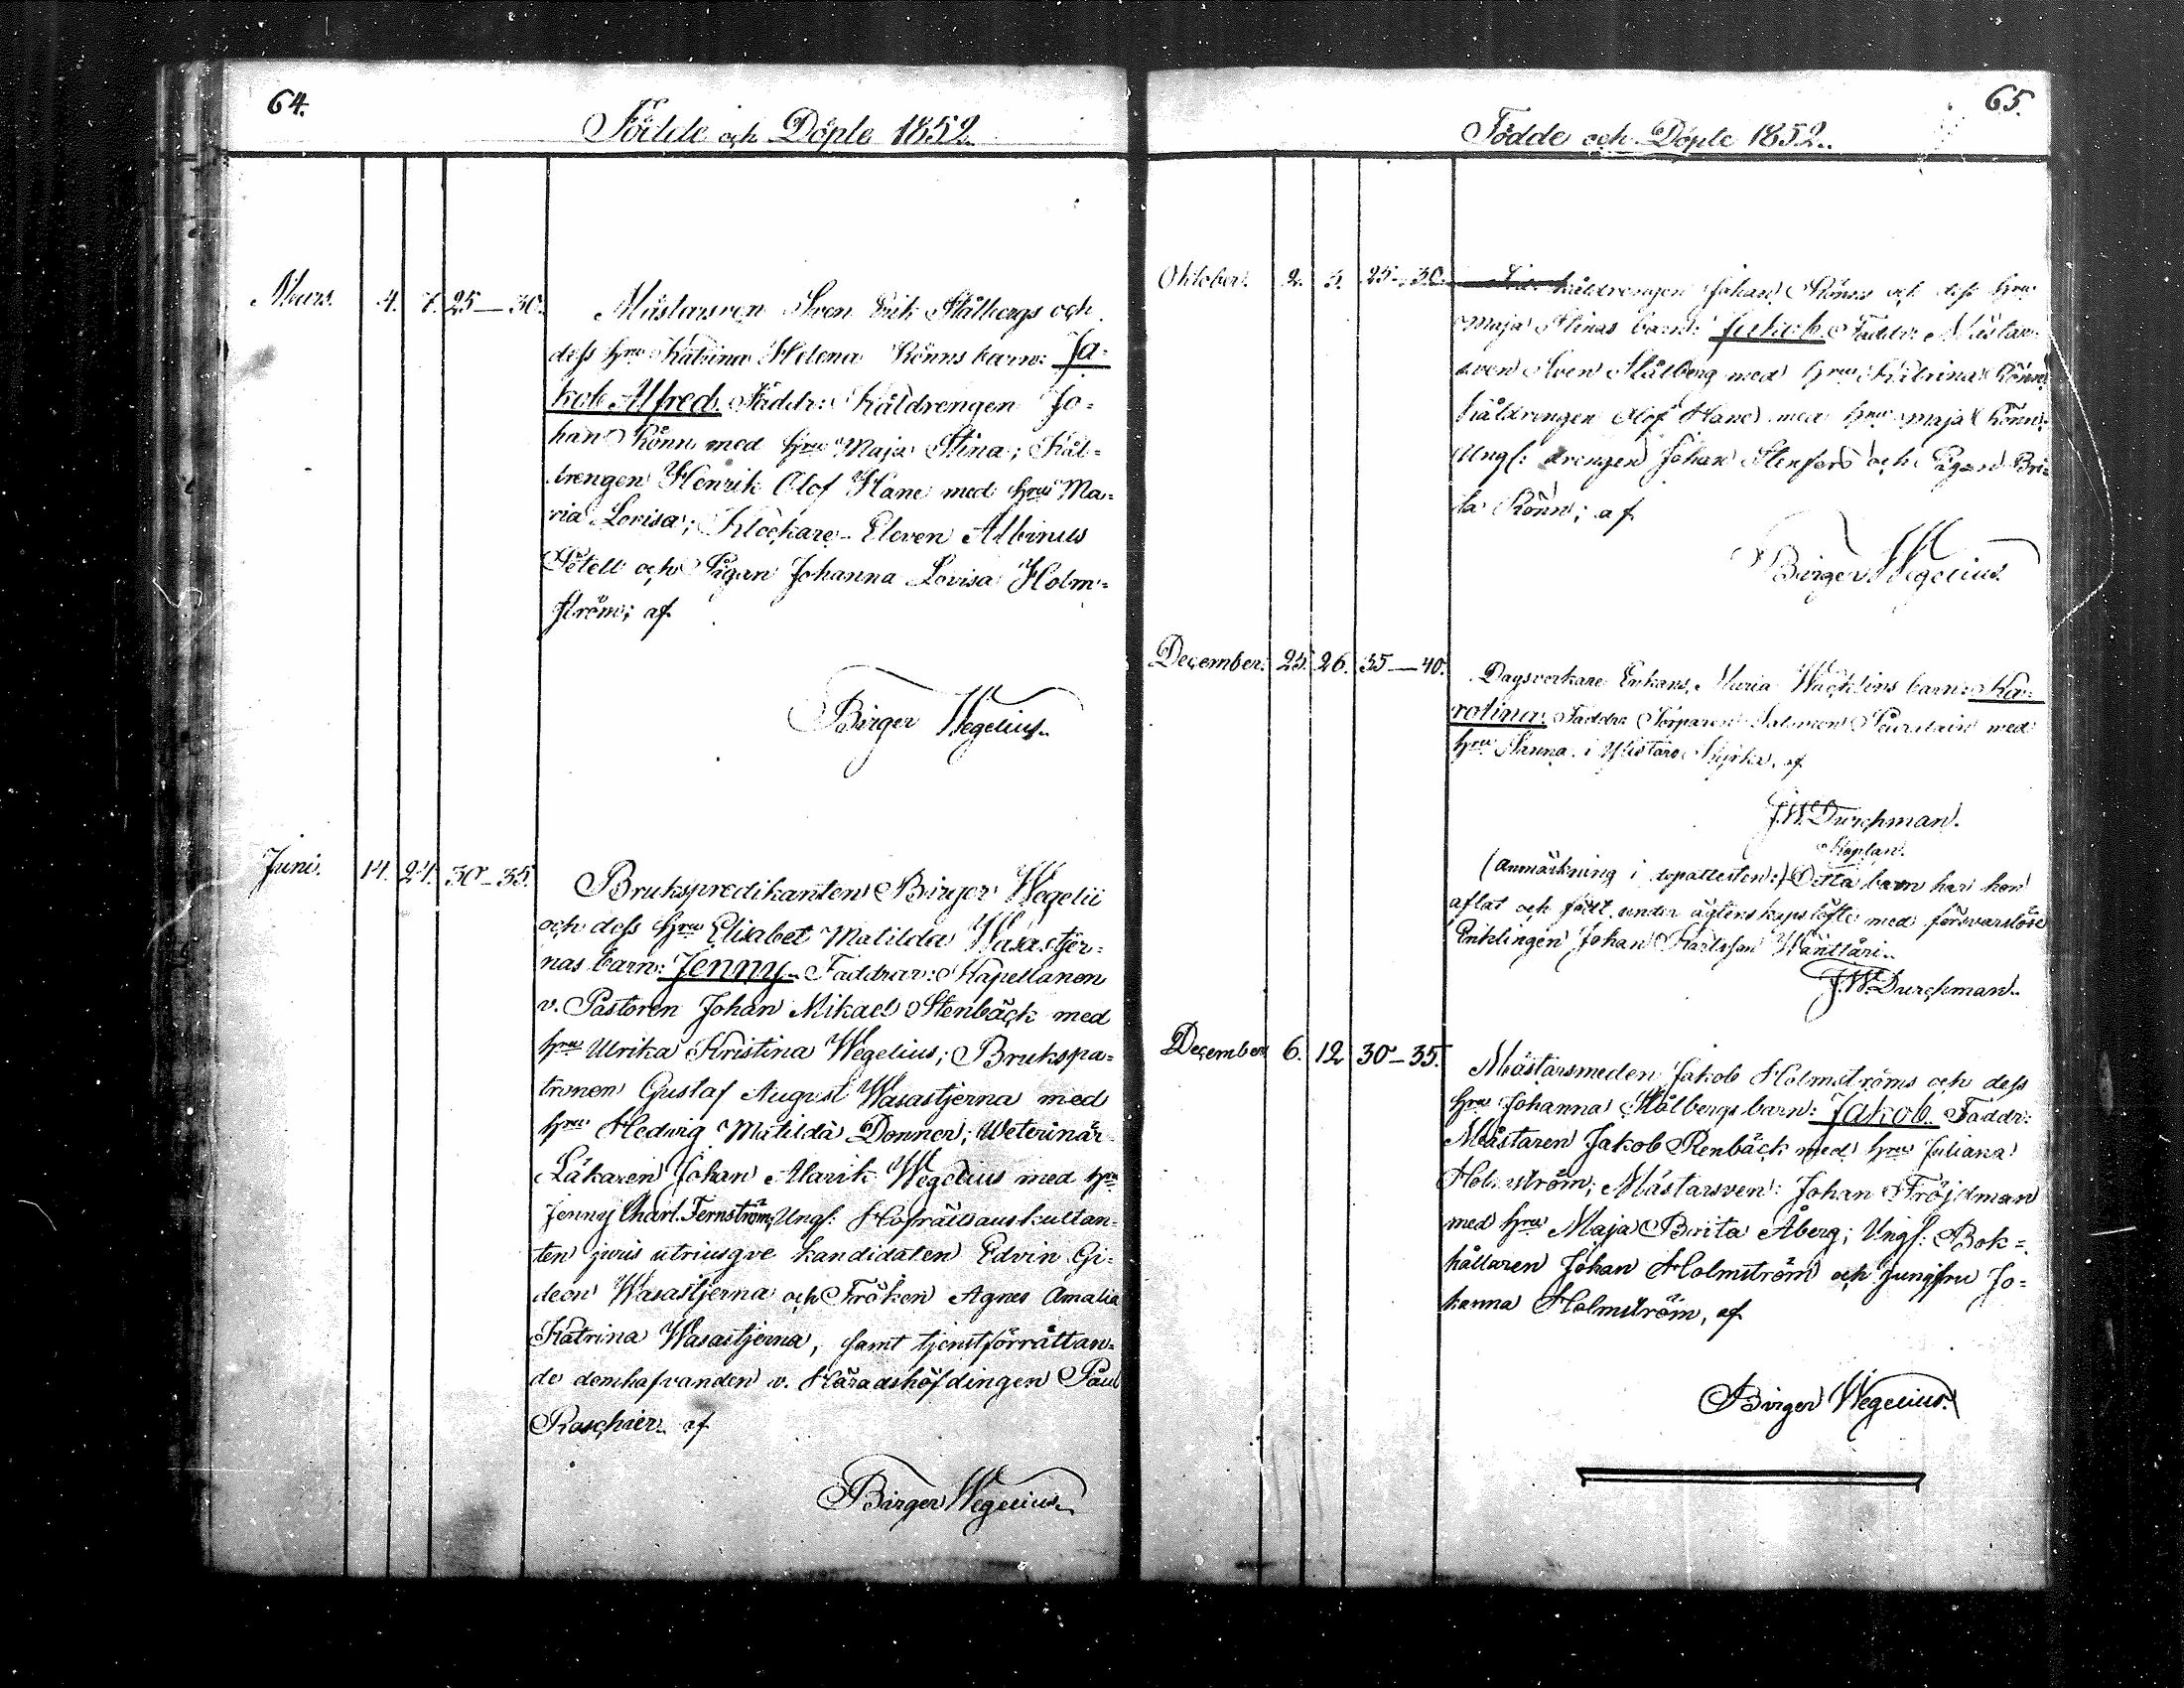 64.
Födde och Döpte 1852.
Mars. 4. 7. 25—30. Mästarsven Sven Erik Stålbergs och
dess hru Katrina Helena Rönns barn: Ja-
kob Alfred. Faddr: Kåldrengen Jo-
han Rönn med hru Maja Stina; Kål-
drengen Henrik Olof Hane med hru Ma-
ria Lovisa; Klockare-Eleven Albinus
Petell och Pigan Johanna Lovisa Holm-
ström; af
Birger Wegelius.
Juni. 14. 24. 30—35. Brukspredikanten Birger Wegelii
och dess hru Elisabet Matilda Wasastjer-
nas barn: Jenny. Faddrar: Kapellanen
v. Pastoren Johan Mikael Stenbäck med
hru Ulrika Kristina Wegelius; Brukspa-
tronen Gustaf August Wasastjerna med
hru Hedvig Matilda Donner; Veterinär
Läkaren Johan Alarik Wegelius med hru
Jenny Charl. Fernström; Ungk. Hofrättsauskultan-
ten juris utriusqve kandidaten Edvin Gi-
deon Wasastjerna och Fröken Agnes Amalia
Katrina Wasastjerna, samt tjenstförrättan-
de domhafvanden v. Häradshöfdingen Paul
Roschier. af
Birger Wegelius.
65.
Födde och Döpte 1852.
Oktober. 2. 3. 25—30. Kåldrengen Johan Rönns och dess hru
Maja Stinas barn: Jakob. Faddr: Mästar-
sven Sven Stålberg med hru Katrina Rönn;
kåldrengen Olof Hane med hru Maja Rönn;
Ungk: drengen Johan Stenfors och Pigan Bri-
ta Rönn; af
Birger Wegelius
December. 25. 26. 35—40. Dagsverkare Enkans, Maria Wäcklins barn: Ka-
rolina. Faddr: Torparen Salomon med
hru Sanna i Ylistaro Kyrka, af
J.W. Durchman.
Kaplan.
(Anmärkning i dopattesten:) Detta barn har hon
aflat och födt under ägtenskapslöfte med försvarslöse
Enklingen Johan Karlsson Wänttäri.
J.W. Durchman.
December 6. 12 30—35. Mästarsmeden Jakob Holmströms och dess
hru Johanna Stålbergs barn: Jakob. Faddr:
Mästaren Jakob Renbäck med hru Juliana
Holmström; Mästarsven: Johan Fröjdman
med hru Maja Brita Åberg; Ungk: Bok-
hållaren Johan Holmström och jungfru Jo-
hanna Holmström, af
Birger Wegelius.